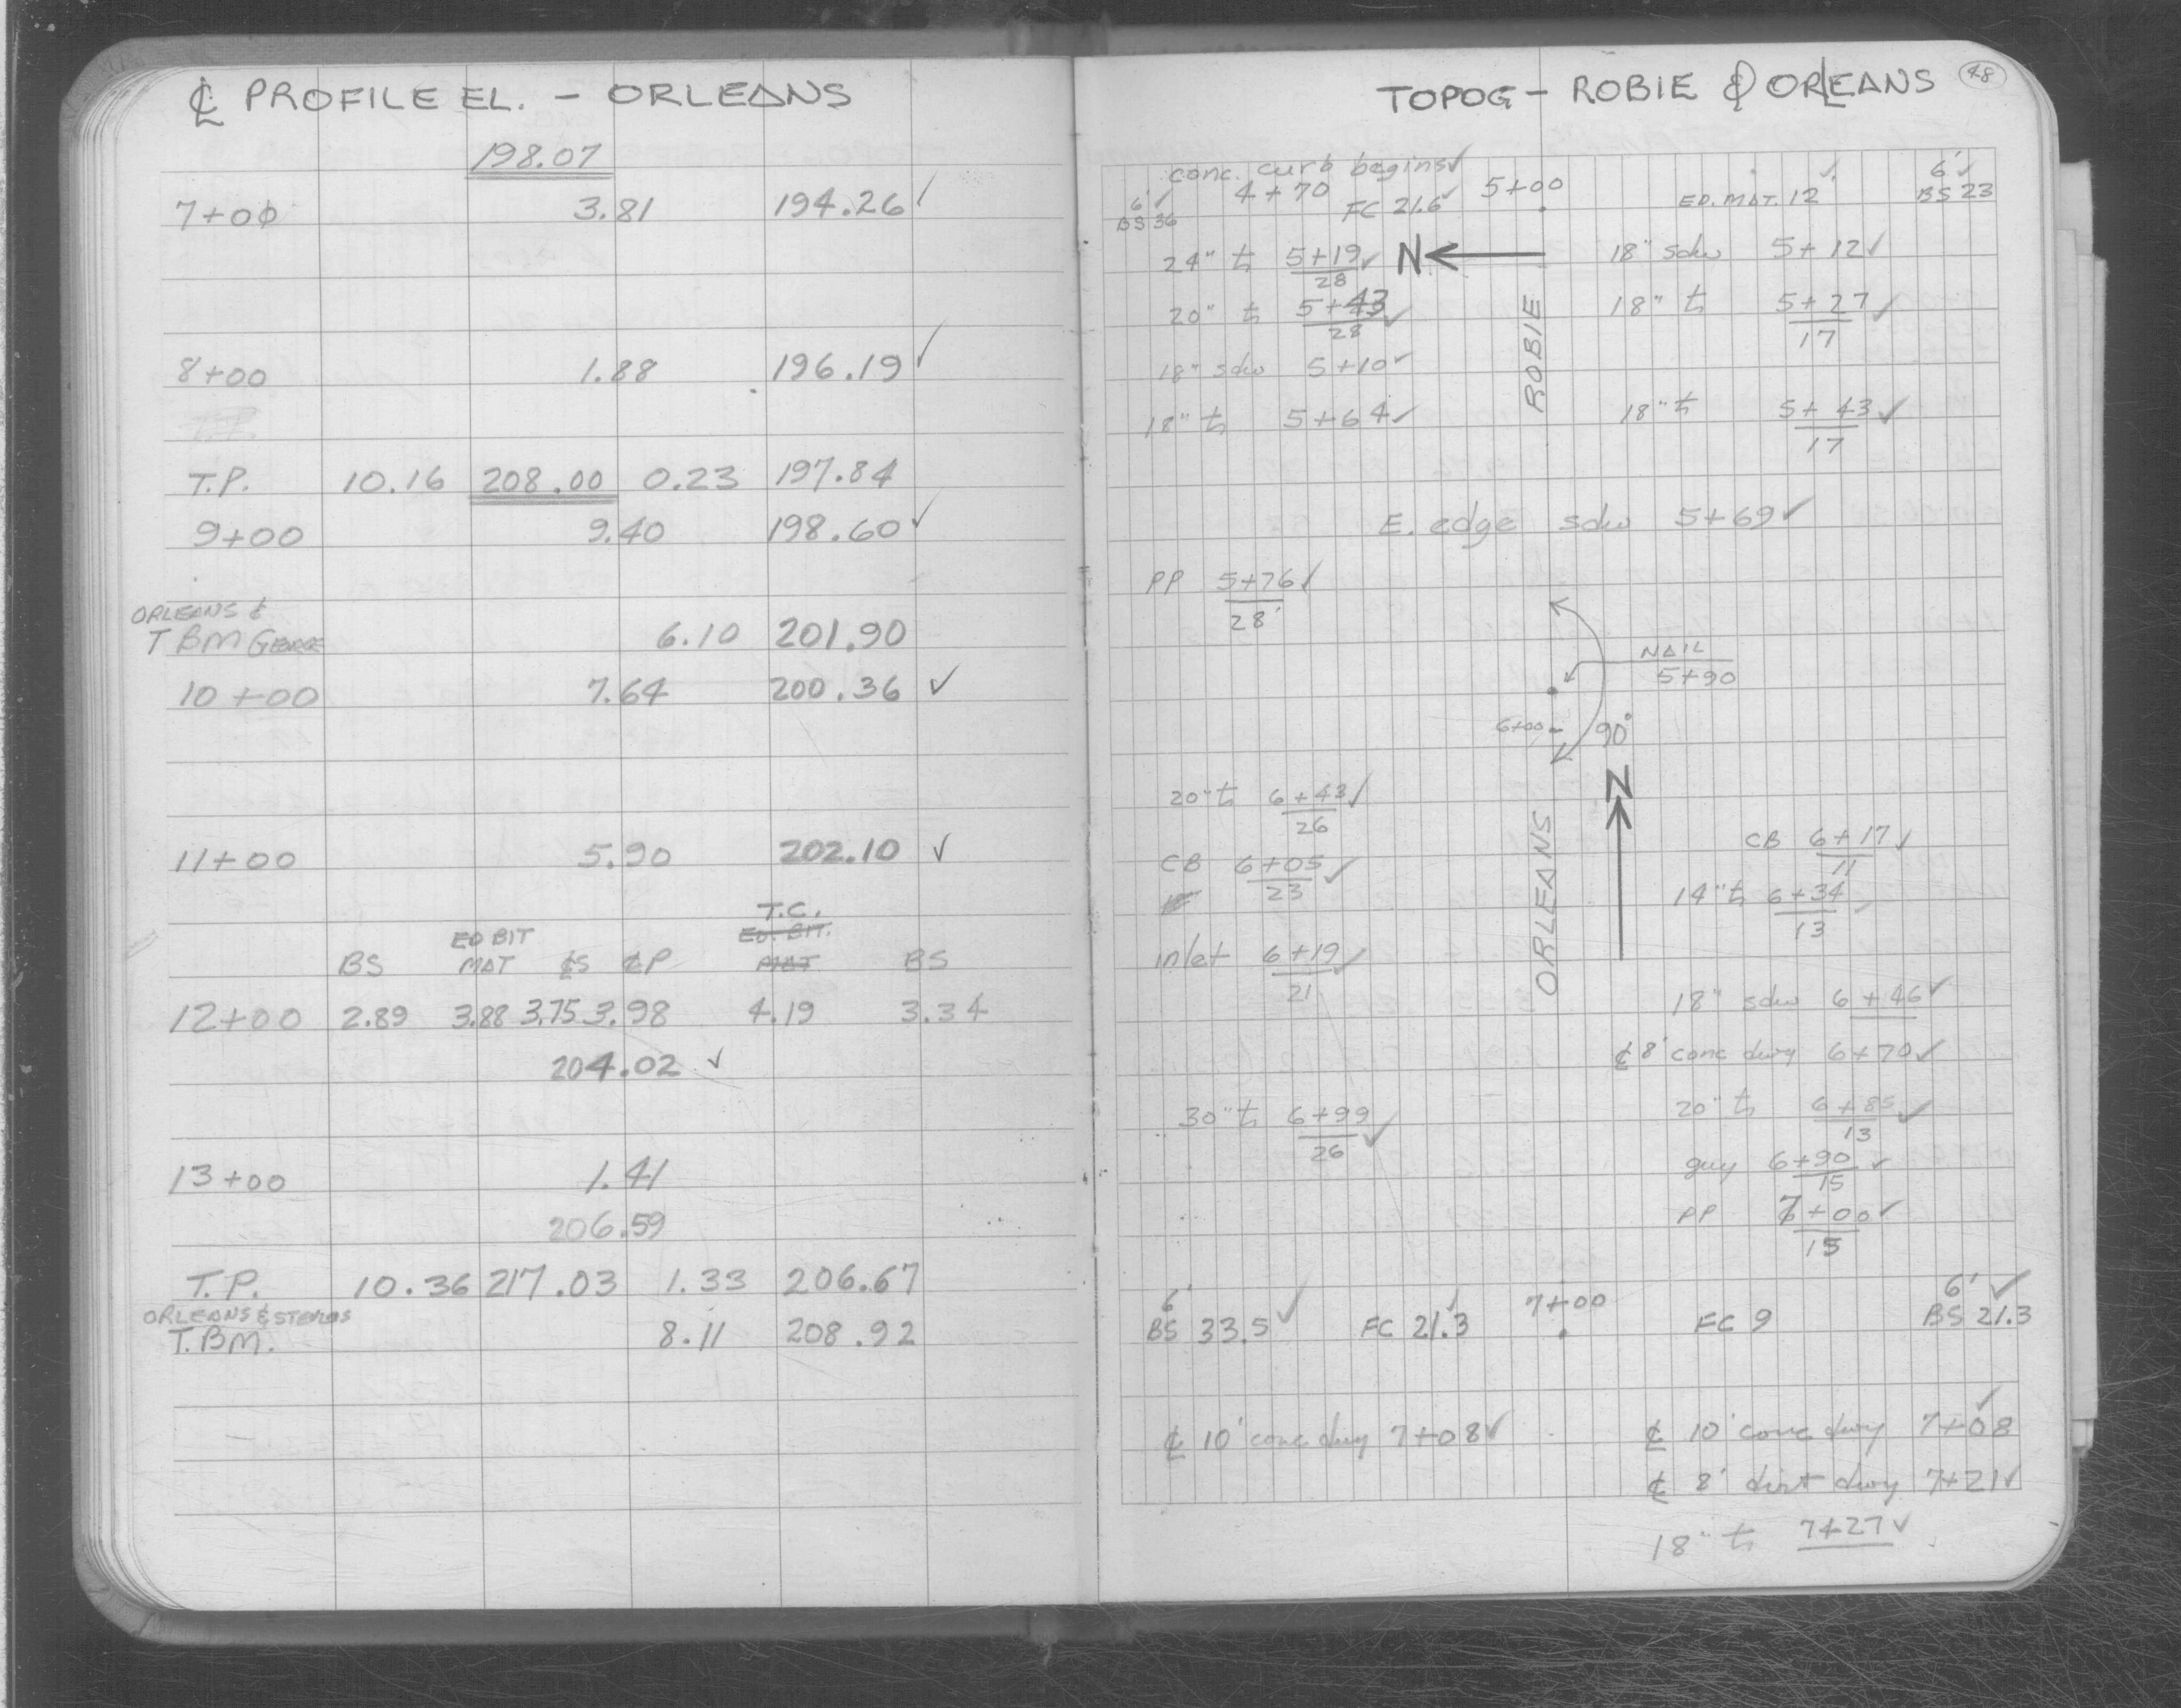 ℄ PROFILE EL. - ORLEANS
198.07
7+00 3.81 194.26 ✓
8+00 1.88 196.19 ✓
T.P.
T.P. 10.16 208.00 0.23 197.84
9+00 9.40 198.60 ✓
ORLEANS &
T BM GEORGE 6.10 201.90
10+00 7.64 200.36 ✓
11+00 5.90 202.10 ✓
T.C.
ED BIT ED. BIT.
BS MAT ℄S ℄P MAT BS
12+00 2.89 3.88 3.75 3.98 4.19 3.34
204.02 ✓
13+00 1.41
206.59
T.P. 10.36 217.03 1.33 206.67
ORLEANS & STERNS
T.BM. 8.11 208.92
TOPOG - ROBIE & ORLEANS 48
conc. curb begins ✓
6' ✓ 4+70 FC 21.6 ✓ 5+00 ED. MAT. 12' ✓ 6' ✓
BS 36 BS 23
24" t 5+19 ✓ N 18" sdw 5+12 ✓
28
20" t 5+43 ✓ 18" t 5+27 ✓
28 17
ROBIE
18" sdw 5+10 ✓
18" t 5+64 ✓ 18" t 5+43 ✓
17
E. edge sdw 5+69 ✓
PP 5+76 ✓
28'
NAIL
5+90
6+00 90°
N
20" t 6+43 ✓
26
CB 6+17 ✓
11
CB 6+05 ✓
23
ORLEANS
14" t 6+34 ✓
13
inlet 6+19 ✓
21
18" sdw 6+46 ✓
℄ 8' conc dwy 6+70 ✓
30" t 6+99 ✓ 20" t 6+85 ✓
26 13
guy 6+90 ✓
15
PP 7+00 ✓
15
6' 7+00 6' ✓
BS 33.5 ✓ FC 21.3 ✓ FC 9 BS 21.3
℄ 10' conc dwy 7+08 ✓ ℄ 10' conc dwy 7+08 ✓
℄ 8' dirt dwy 7+21 ✓
18" t 7+27 ✓